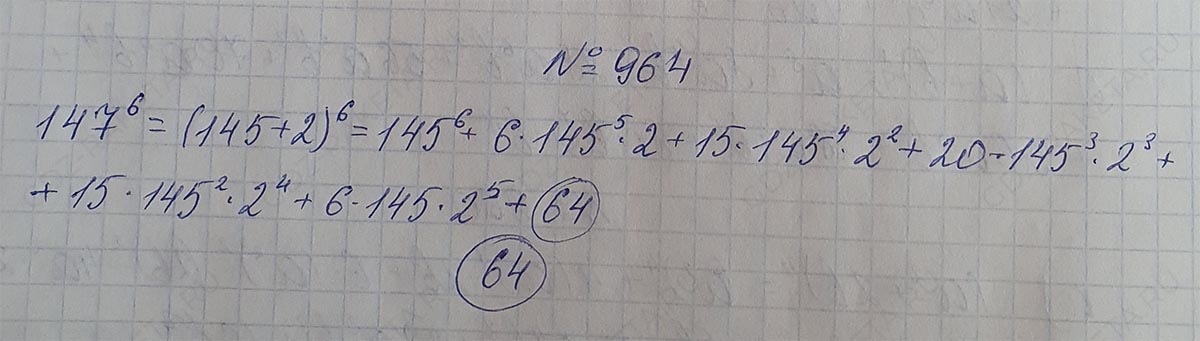 № 964
147⁶ = (145+2)⁶ = 145⁶ + 6·145⁵·2 + 15·145⁴·2² + 20·145³·2³ +
+ 15·145²·2⁴ + 6·145·2⁵ + 64
64